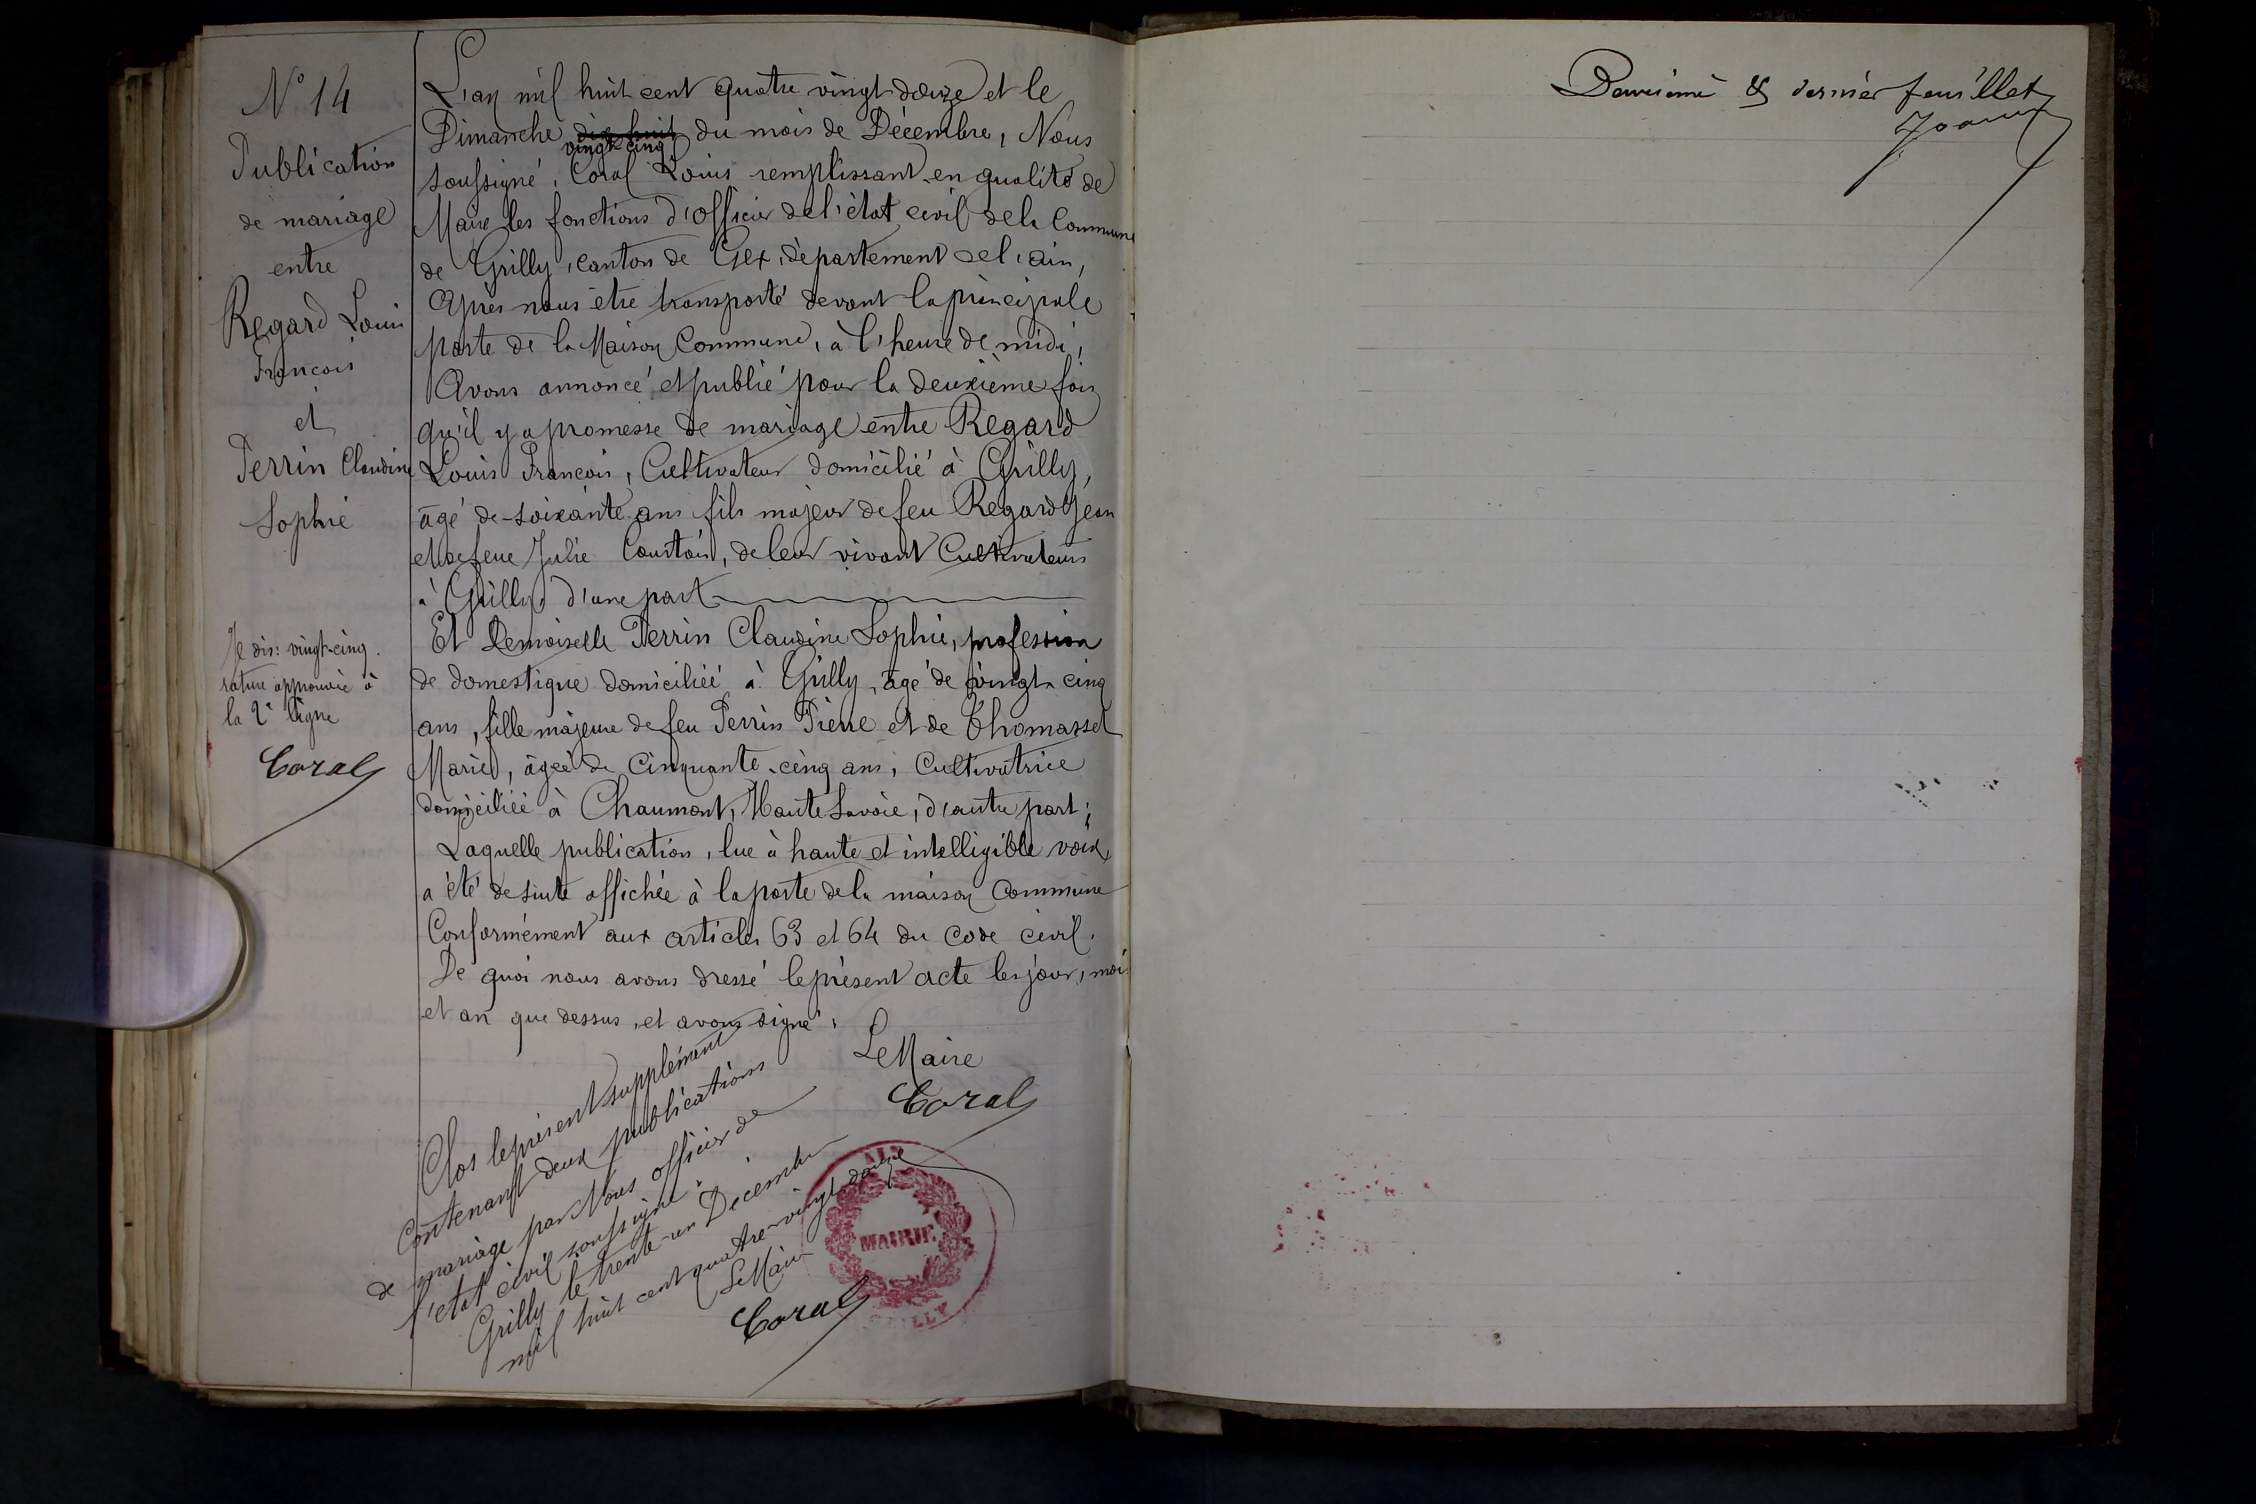 N° 14
Publication
de mariage
entre
Regard Louis
François
et
Perrin Claudine
Sophie
Je dis: vingt-cinq.
rature approuvée à
la 2e ligne
Coral
L'an mil huit cent quatre vingt-douze et le
Dimanche dix-huit vingt-cinq du mois de Décembre, Nous
soussigné, Coral Louis remplissant en qualité de
Maire les fonctions d'officier de l'état civil de la Commune
de Grilly, canton de Gex, département de l'ain,
Après nous être transporté devant la principale
porte de la Maison Commune, à l'heure de midi,
Avons annoncé et publié pour la deuxième fois
qu'il y a promesse de mariage entre Regard
Louis François, Cultivateur domicilié à Grilly,
âgé de soixante ans fils majeur de feu Regard Jean
et de feue Julie Courtois, de leur vivant Cultivateurs
à Grilly, d'une part
Et Demoiselle Perrin Claudine Sophie, profession
de domestique domiciliée à Grilly, âgé de vingt-cinq
ans, fille majeure de feu Perrin Pierre et de Thomasset
Marie, âgée de Cinquante-cinq ans, Cultivatrice
domiciliée à Chaumont, Haute Savoie, d'autre part;
Laquelle publication, lue à haute et intelligible voix,
a été de suite affichée à la porte de la maison Commune
Conformément aux articles 63 et 64 du Code civil.
De quoi nous avons dressé le présent acte les jour, mois
et an que dessus, et avons signé.
Le Maire
Coral
Clos le présent supplément
Contenant deux publications
de mariage par Nous officier de
l'état civil soussigné.
Grilly le trente-un Décembre
mil huit cent quatre-vingt-douze
Le Maire
Coral
MAIRIE
Deuxième & dernier feuillet